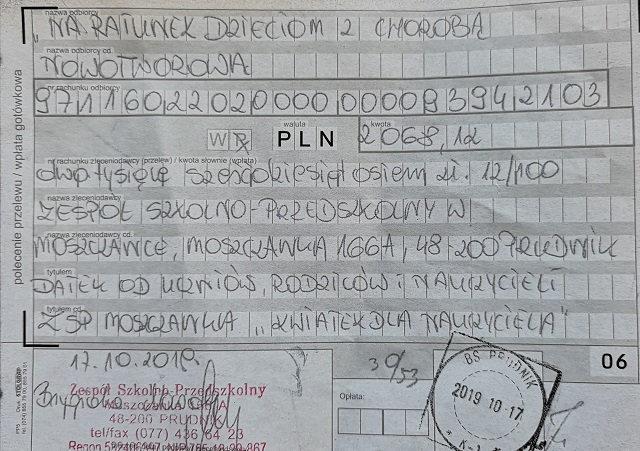 nazwa odbiorcy
„NA RATUNEK DZIECIOM Z CHOROBĄ
nazwa odbiorcy cd.
NOWOTWOROWĄ
nr rachunku odbiorcy
97116022020000000083942103
waluta
kwota
W P PLN 2068,12
nr rachunku zleceniodawcy (przelew) / kwota słownie (wpłata)
dwa tysiące sześćdziesiąt osiem zł. 12/100
nazwa zleceniodawcy
ZESPÓŁ SZKOLNO-PRZEDSZKOLNY W
nazwa zleceniodawcy cd.
MOSZCZANCE, MOSZCZANKA 166A, 48-200 PRUDNIK
tytułem
DATEK OD UCZNIÓW, RODZICÓW I NAUCZYCIELI
tytułem cd.
ZSP MOSZCZANKA „KWIATEK DLA NAUCZYCIELA"
polecenie przelewu / wpłata gotówkowa
06
17.10.2019.
Zespół Szkolno-Przedszkolny
48-200 PRUDNIK
tel/fax (077) 436 64 23
Opłata:
BS PRUDNIK
2019 10-17